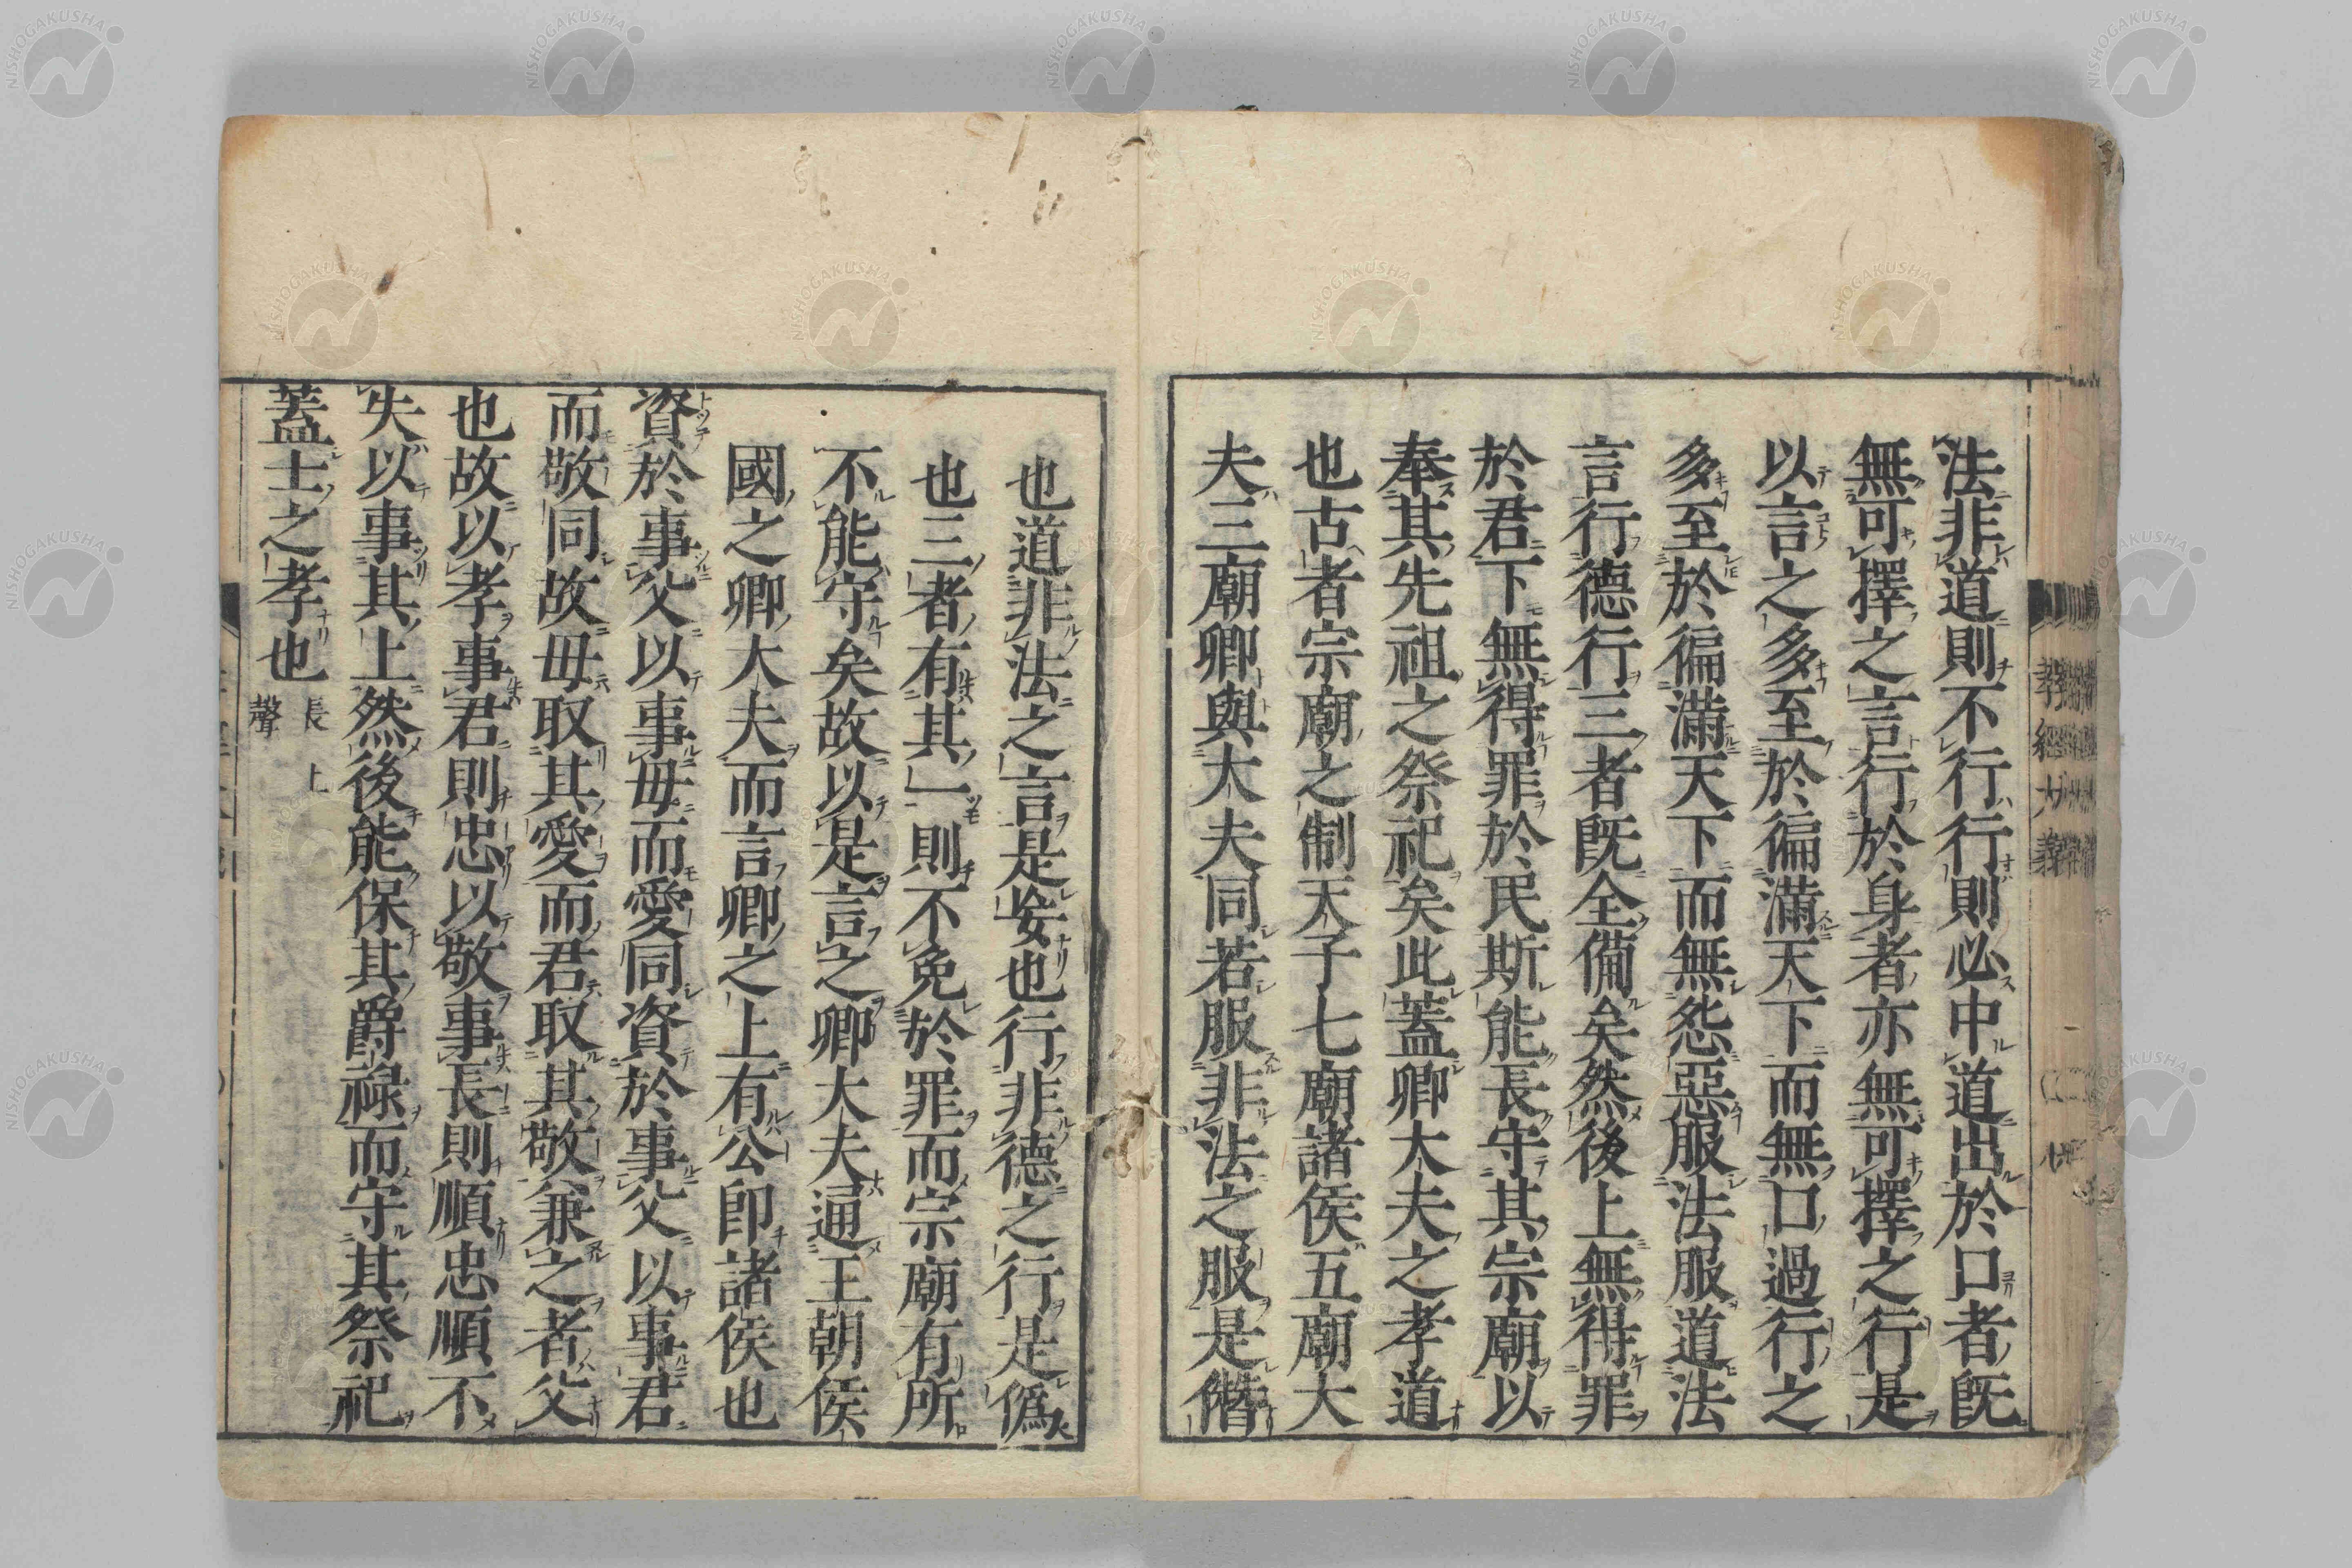 法非道則不行行則必中道出於口者既
無可擇之言行於身者亦無可擇之行是
以言之多至於徧滿天下而無口過行之
多至於徧滿天下而無怨惡服法服道法
言行德行三者既全備矣然後上無得罪
於君下無得罪於民斯能長守其宗廟以
奉其先祖之祭祀矣此蓋卿大夫之孝道
也古者宗廟之制天子七廟諸侯五廟大
夫三廟卿與大夫同若服非法之服是僭
也道非法之言是妄也行非德之行是僞
也三者有其一則不免於罪而宗廟有所
不能守矣故以是言之卿大夫通王朝侯
國之卿大夫而言卿之上有公即諸侯也
資於事父以事母而愛同資於事父以事君
而敬同故母取其愛而君取其敬兼之者父
也故以孝事君則忠以敬事長則順忠順不
失以事其上然後能保其爵祿而守其祭祀
蓋士之孝也
長上
聲